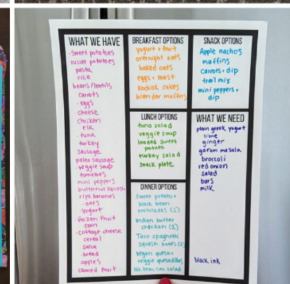 WHAT WE HAVE
sweet potatoes
russet potatoes
pasta
rice
beans/lentils
carrots
eggs
cheese
chicken
elk
tuna
turkey
sausage
pasta sausage
veggie soup
tomatoes
mini peppers
butternut squash
ripe bananas
oats
yogurt
frozen fruit
corn
cottage cheese
cereal
bread
apples
canned fruit
BREAKFAST OPTIONS
yogurt + fruit
overnight oats
baked oats
eggs + toast
blender muffins
LUNCH OPTIONS
tuna salad
veggie soup
loaded sweet
potato
turkey salad
snack plate
DINNER OPTIONS
sweet potato +
black bean
enchiladas (2)
Indian butter
chicken (2)
Taco spaghetti
squash boats (2)
SNACK OPTIONS
Apple nachos
muffins
carrots + dip
trail mix
mini peppers +
dip
WHAT WE NEED
plain greek yogurt
lime
ginger
garam masala
broccoli
red onion
salad
bars
milk
black ink